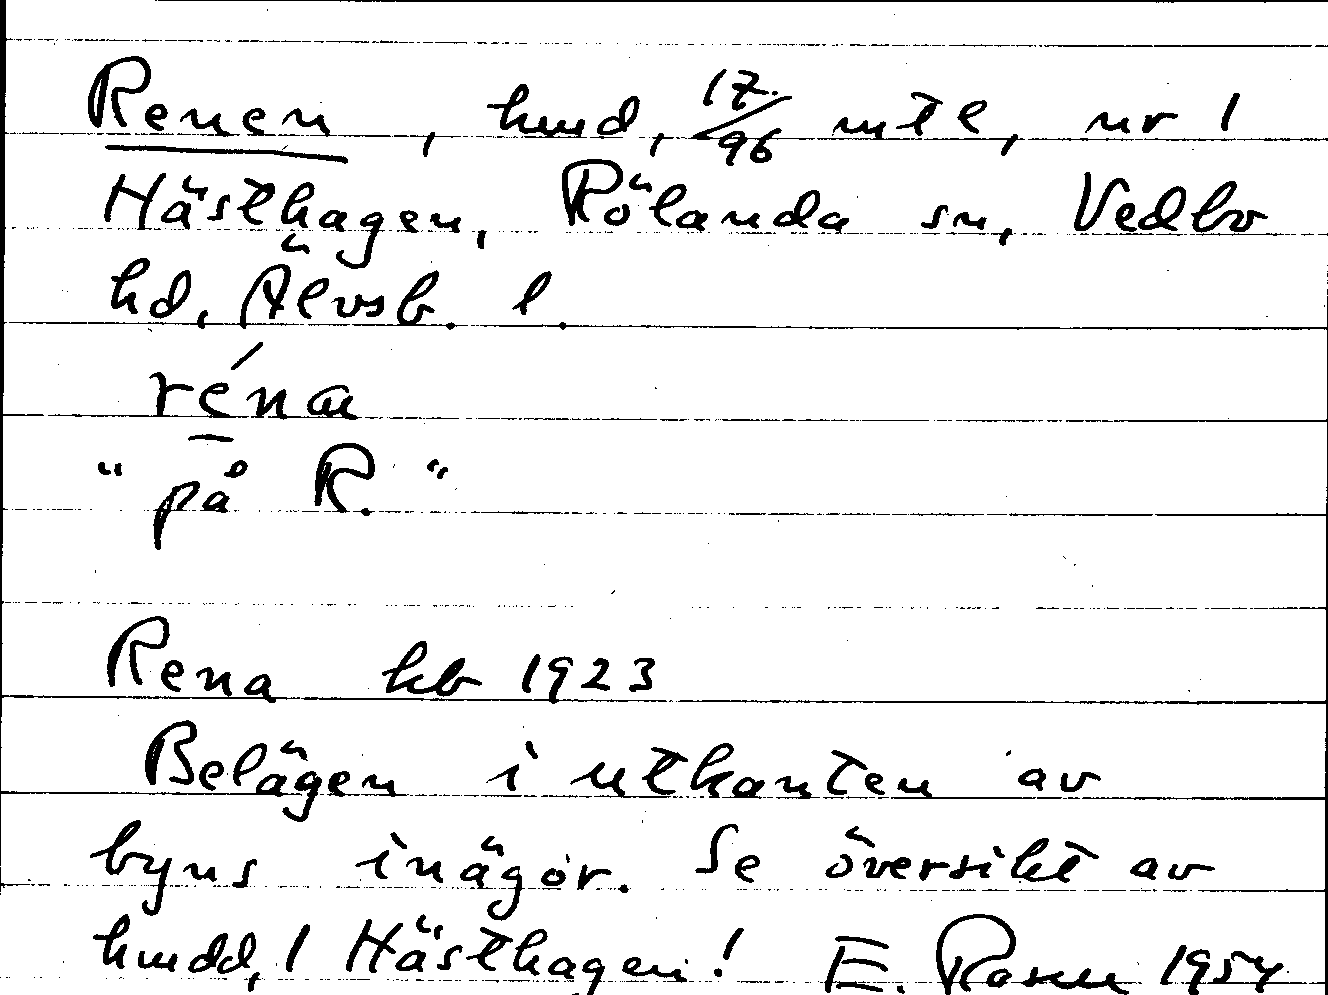 Renen, hmd, 17/96 mtl, nr 1
Hästhagen, Rölanda sn, Vedbo
hd, Älvsb. l.
rénæ
"på R."
Rena kb 1923
Belägen i utkanten av
byns inägor. Se översikt av
hmdd, 1 Hästhagen! E. Rosen 1954